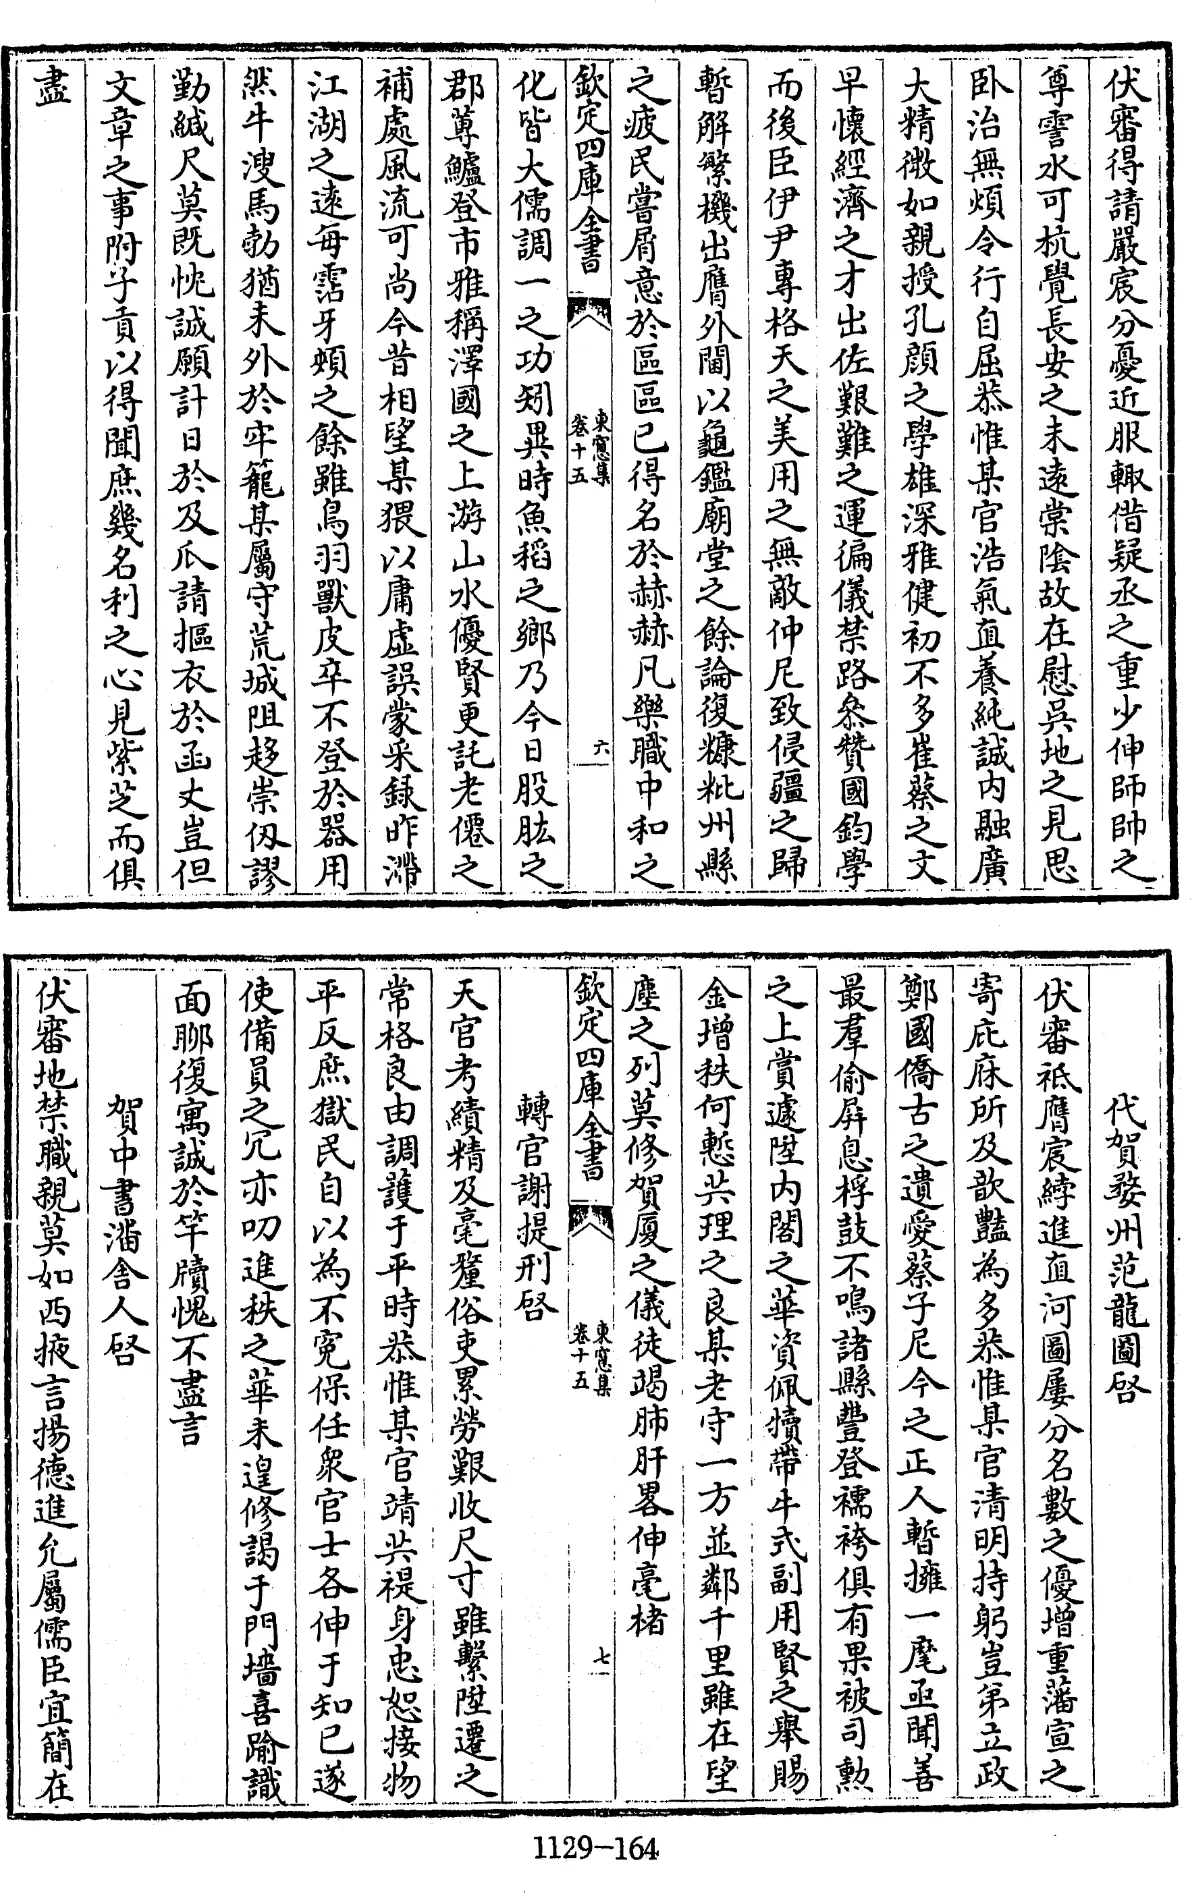 伏審得請嚴宸分憂近服輙借疑丞之重少伸師帥之
尊霅水可杭覺長安之未遠棠陰故在慰吳地之見思
卧治無煩令行自屈恭惟某官浩氣直養純誠内融廣
大精微如親授孔顔之學雄深雅健初不多崔蔡之文
早懷經濟之才出佐艱難之運徧儀禁路叅贊國鈞學
而後臣伊尹專格天之美用之無敵仲尼致侵疆之歸
暫解繁機出膺外閫以龜鑑廟堂之餘論復糠粃州縣
之疲民嘗屑意於區區已得名於赫赫凡樂職中和之
欽定四庫全書
東窻集
卷十五
六
化皆大儒調一之功矧異時魚稻之鄉乃今日股肱之
郡蓴鱸登市雅稱澤國之上游山水優賢更託老僊之
補處風流可尚今昔相望某猥以庸虛誤蒙采録昨滯
江湖之遠每霑牙頰之餘雖鳥羽獸皮卒不登於器用
然牛溲馬勃猶未外於牢籠某屬守荒城阻趍崇仭謬
勤緘尺莫既忱誠願計日於及瓜請摳衣於函丈豈但
文章之事附子貢以得聞庶幾名利之心見紫芝而俱
盡
代賀婺州范龍圖啓
伏審祗膺宸綍進直河圖屢分名數之優增重藩宣之
寄庇庥所及歆豔為多恭惟某官清明持躬豈弟立政
鄭國僑古之遺愛蔡子尼今之正人暫擁一麾亟聞善
最羣偷屏息桴鼓不鳴諸縣豐登襦袴俱有果被司勲
之上賞遽陞内閣之華資佩犢帶牛式副用賢之舉賜
金增秩何慙共理之良某老守一方並鄰千里雖在望
塵之列莫修賀厦之儀徒竭肺肝畧伸毫楮
欽定四庫全書
東窻集
卷十五
七
轉官謝提刑啓
天官考績精及毫釐俗吏累勞艱收尺寸雖繫陞遷之
常格良由調護于平時恭惟某官靖共禔身忠恕接物
平反庶獄民自以為不寃保任衆官士各伸于知已遂
使備員之冗亦叨進秩之華未遑修謁于門墻喜踰識
面聊復寓誠於竿牘愧不盡言
賀中書潘舍人啓
伏審地禁職親莫如西掖言揚德進允屬儒臣宜簡在
1129-164